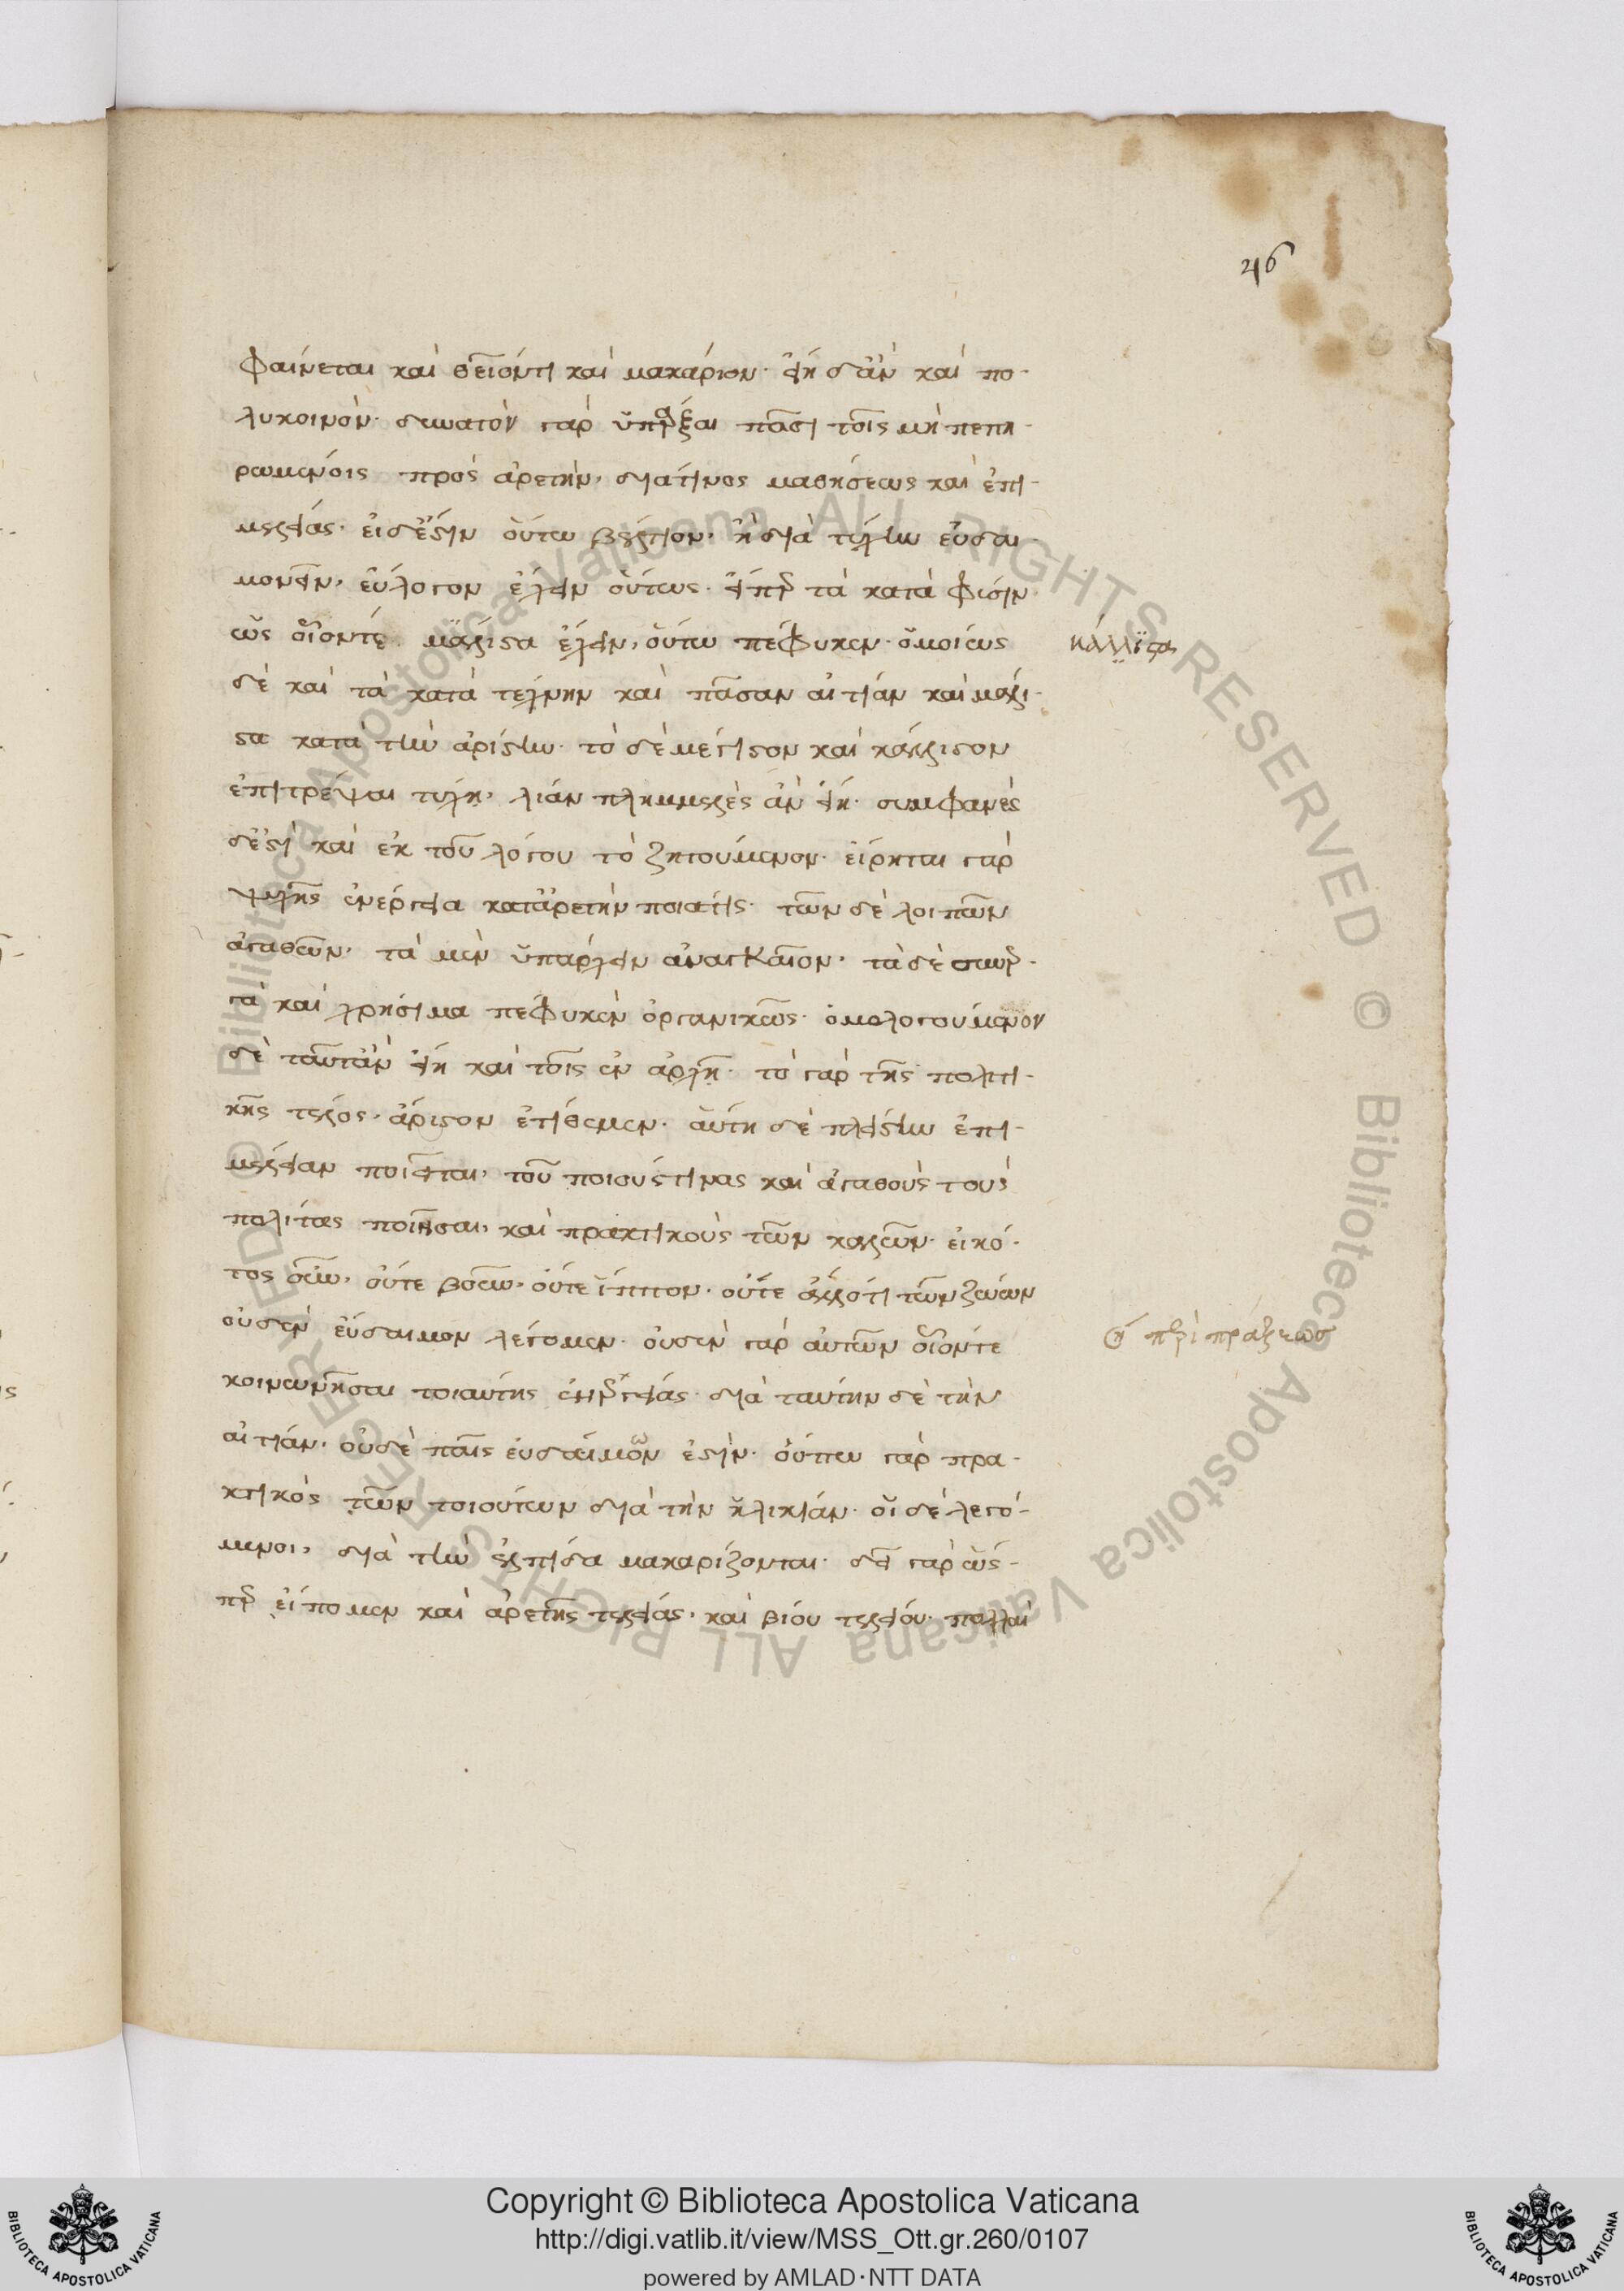 46
φαίνεται καὶ θεῖόν τι καὶ μακάριον· εἴη δ' ἂν καὶ πο-
λύκοινον· δυνατὸν γὰρ ὑπάρξαι πᾶσι τοῖς μὴ πεπη-
ρωμένοις πρὸς ἀρετὴν, διά τινος μαθήσεως καὶ ἐπι-
μελείας· εἰ δ' ἐστὶν οὕτω βέλτιον, ἢ διὰ τύχην εὐδαι-
μονεῖν, εὔλογον ἔχειν οὕτως· εἴπερ τὰ κατὰ φύσιν
ὡς οἷόν τε μάλλιστα ἔχειν, οὕτω πέφυκεν· ὁμοίως
κάλλιστα
δὲ καὶ τὰ κατὰ τέχνην καὶ πᾶσαν αἰτίαν καὶ μάλι-
στα κατὰ τὴν ἀρίστην· τὸ δὲ μέγιστον καὶ κάλλιστον
ἐπιτρέψαι τύχη, λίαν πλημμελὲς ἂν εἴη· συμφανὲς
δ' ἐστὶ καὶ ἐκ τοῦ λόγου τὸ ζητούμενον· εἴρηται γὰρ
ψυχῆς ἐνέργεια κατ' ἀρετὴν ποιά τις· τῶν δὲ λοιπῶν
ἀγαθῶν, τὰ μὲν ὑπάρχειν ἀναγκαῖον, τὰ δὲ συνερ-
γὰ καὶ χρήσιμα πέφυκεν ὀργανικῶς· ὁμολογούμενον
δὲ ταῦτ' ἂν εἴη καὶ τοῖς ἐν ἀρχῆ· τὸ γὰρ τῆς πολιτι-
κῆς τέλος, ἄριστον ἐτίθεμεν· αὕτη δὲ πλείστην ἐπι-
μέλειαν ποιεῖται, τοῦ ποιούς τινας καὶ ἀγαθοὺς τοὺς
πολίτας ποιῆσαι, καὶ πρακτικοὺς τῶν καλῶν· εἰκό-
τος οὖν, οὔτε βοῦν, οὔτε ἵππον, οὔτε ἄλλό τι τῶν ζώων
οὐδὲν εὔδαιμον λέγομεν· οὐδὲν γὰρ αὐτῶν οἷόν τε
περὶ πράξεως
κοινωνῆσαι τοιαύτης ἐνεργείας· διὰ ταύτην δὲ τὴν
αἰτίαν, οὐδὲ παῖς εὐδαίμων ἐστίν· οὔπω γὰρ πρα-
κτικὸς τῶν τοιούτων διὰ τὴν ἡλικίαν· οἱ δὲ λεγό-
μενοι, διὰ τὴν ἐλπίδα μακαρίζονται· δεῖ γὰρ ὥς-
περ εἴπομεν καὶ ἀρετῆς τελείας, καὶ βίου τελείου· πολλαὶ
© Biblioteca Apostolica Vaticana ALL RIGHTS RESERVED © Biblioteca Apostolica Vaticana ALL RIGHTS RESERVED
BIBLIOTECA APOSTOLICA VATICANA
Copyright © Biblioteca Apostolica Vaticana
http://digi.vatlib.it/view/MSS_Ott.gr.260/0107
powered by AMLAD·NTT DATA
BIBLIOTECA APOSTOLICA VATICANA